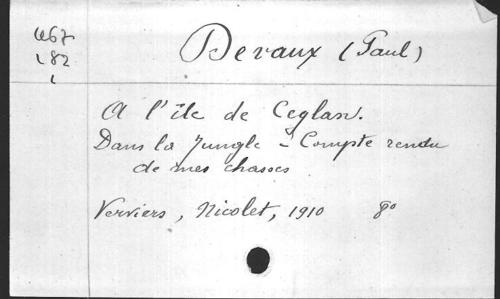 467
182
1
Devaux (Paul)
A l'île de Ceylan.
Dans la Jungle - Compte rendu
de mes chasses
Verviers, Nicolet, 1910 8°